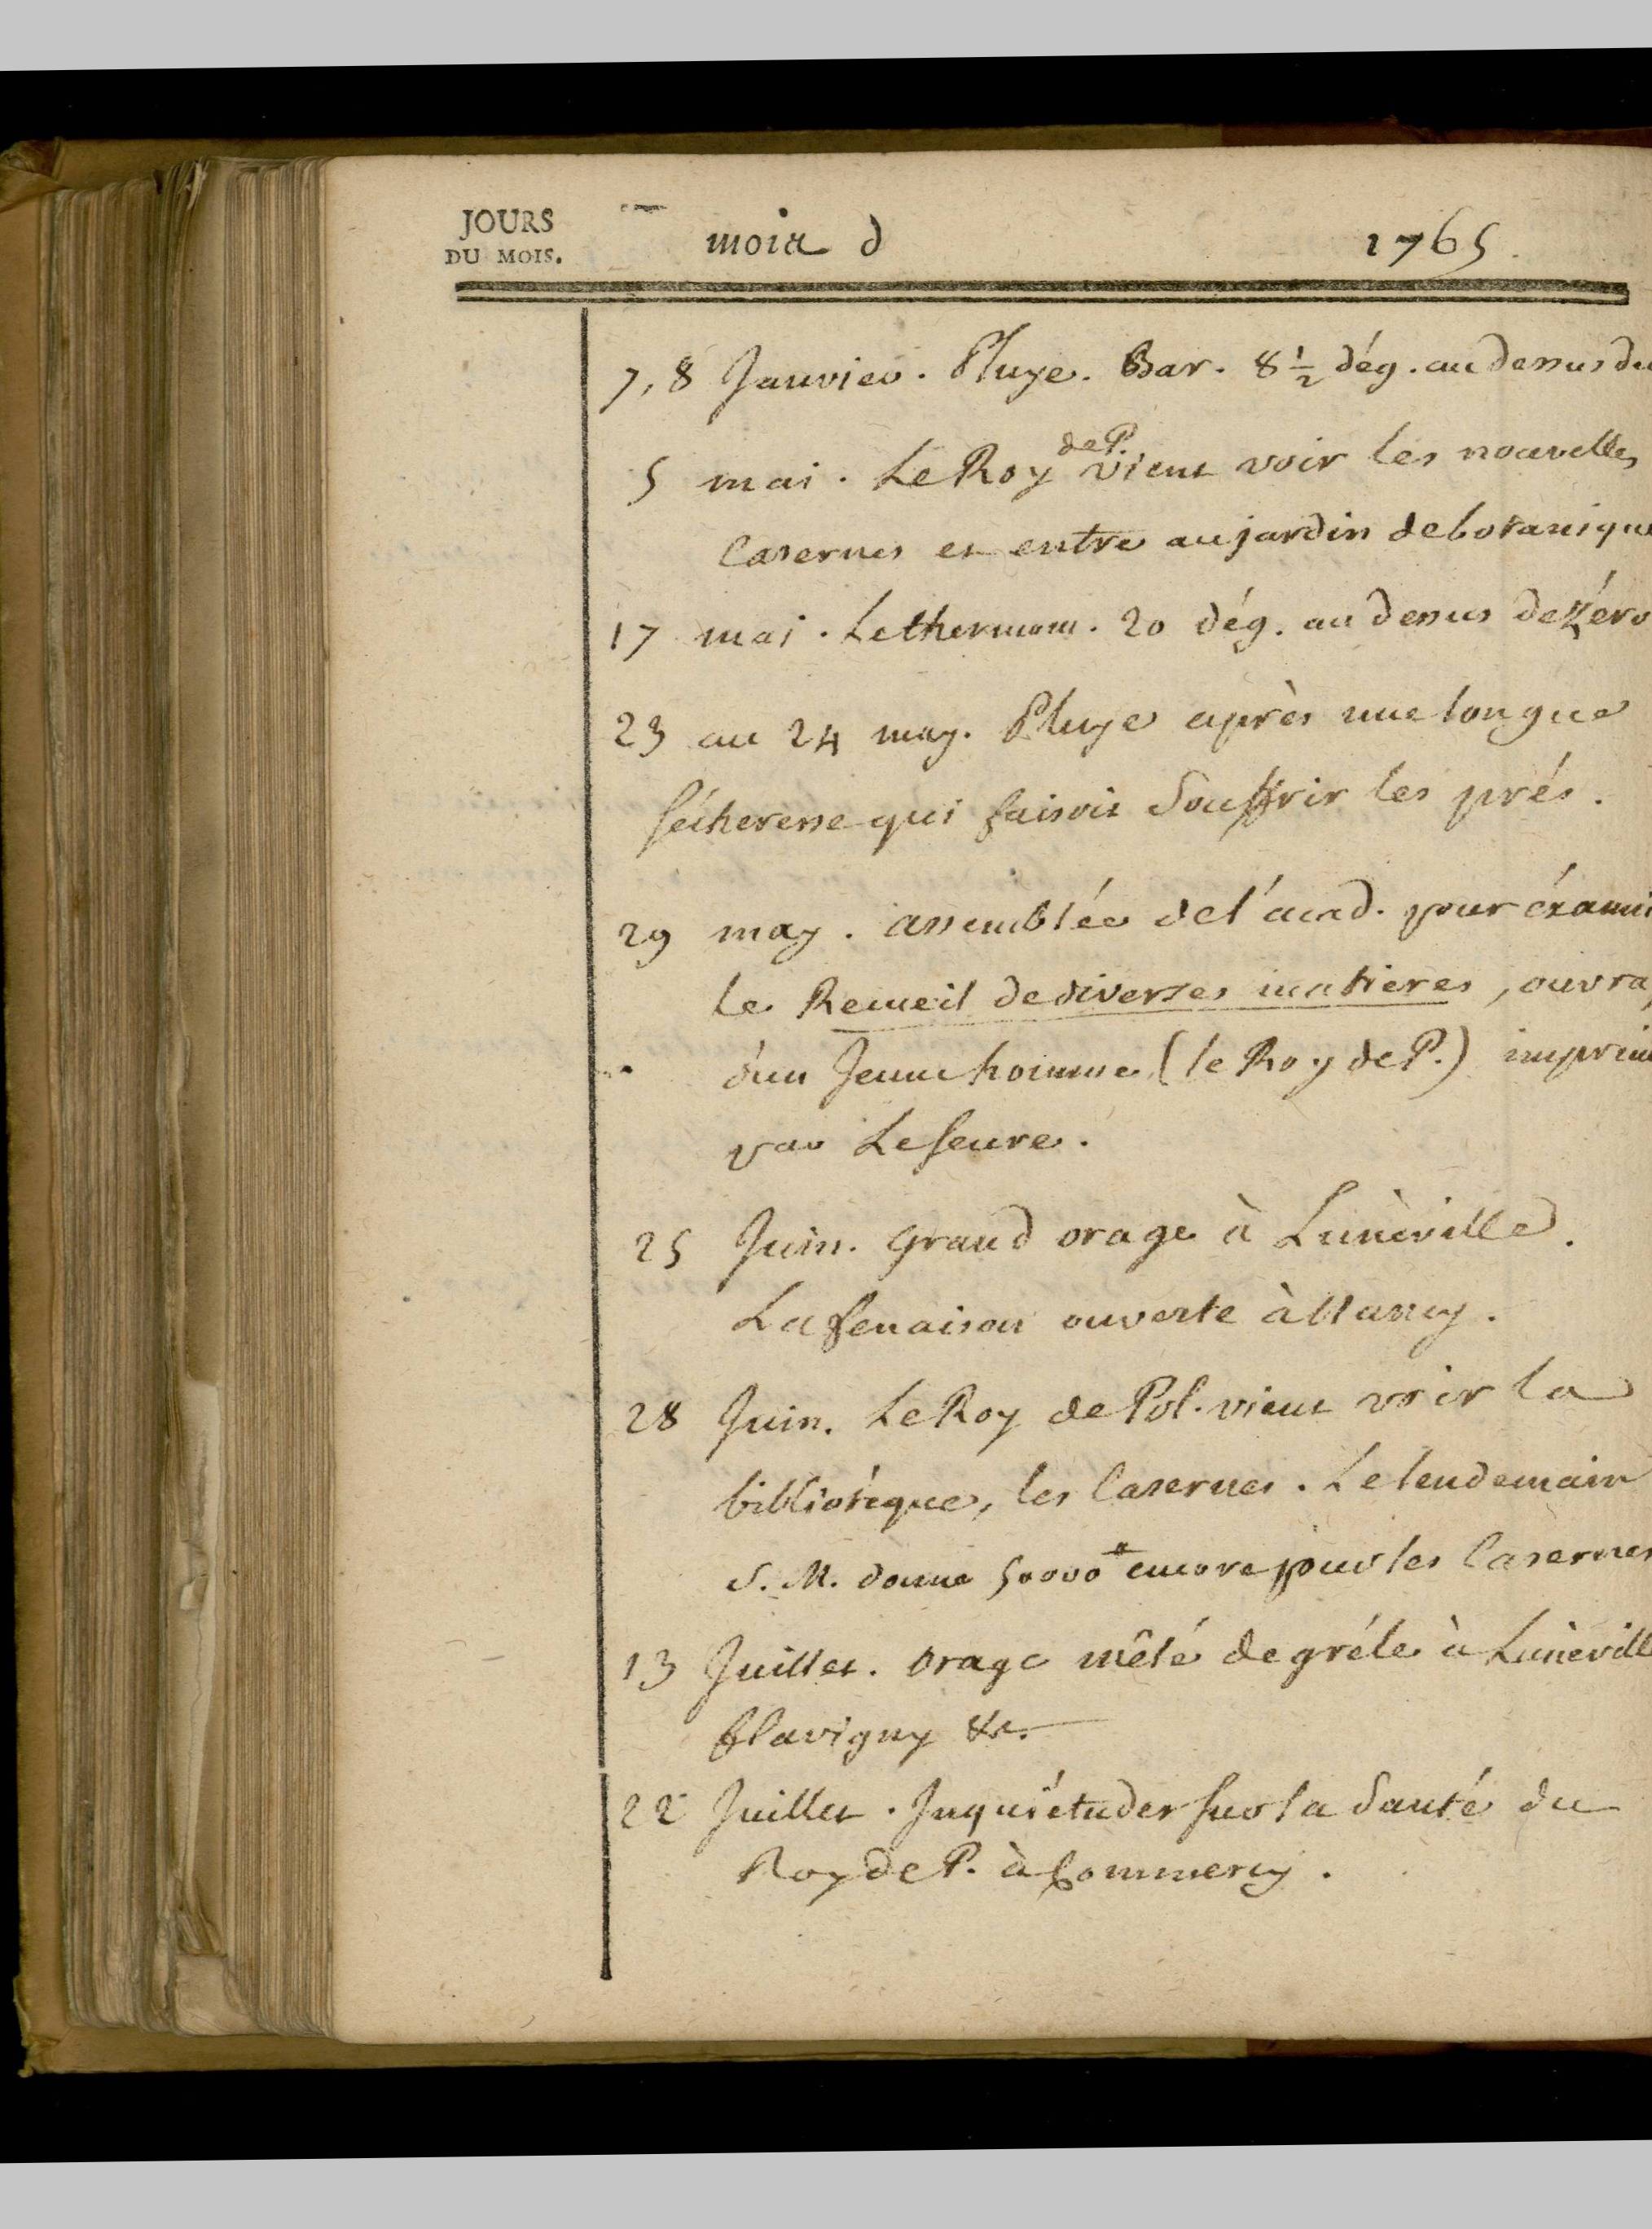 JOURS
DU MOIS.
mois d
1765.
7, 8 Janvier. Pluye. Bar. 8 1/2 dég. au dessus du
5 mai. Le Roy de P. vient voir les nouvelles
Casernes et entre au jardin de botanique
17 mai. Le thermom. 20 dég. au dessus de zéro
23 au 24 may. Pluye après une longue
sécheresse qui faisoit souffrir les prés.
29 may. assemblée de l'acad. pour éxami
le Recueil de diverses matières, ouvra
d'un Jeune homme (le Roy de P.) imprim
par Leseure.
25 Juin. grand orage à Lunéville.
La fenaison ouverte à Nancy.
28 Juin. Le Roy de Pol. vient voir la
bibliotéque, les Casernes. Le lendemain
S. M. donne 50000 ₶ encore pour les Casernes
13 Juillet. orage mêlé de gréle à Lunévill
flavigny &c.
22 Juillet. Inquiétudes sur la santé du
Roy de P. à Commercy.